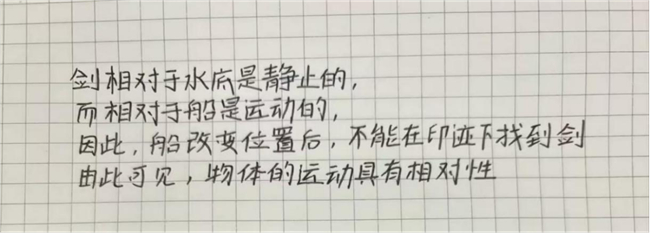 剑相对于水底是静止的,
而相对于船是运动的,
因此,船改变位置后,不能在印迹下找到剑
由此可见,物体的运动具有相对性